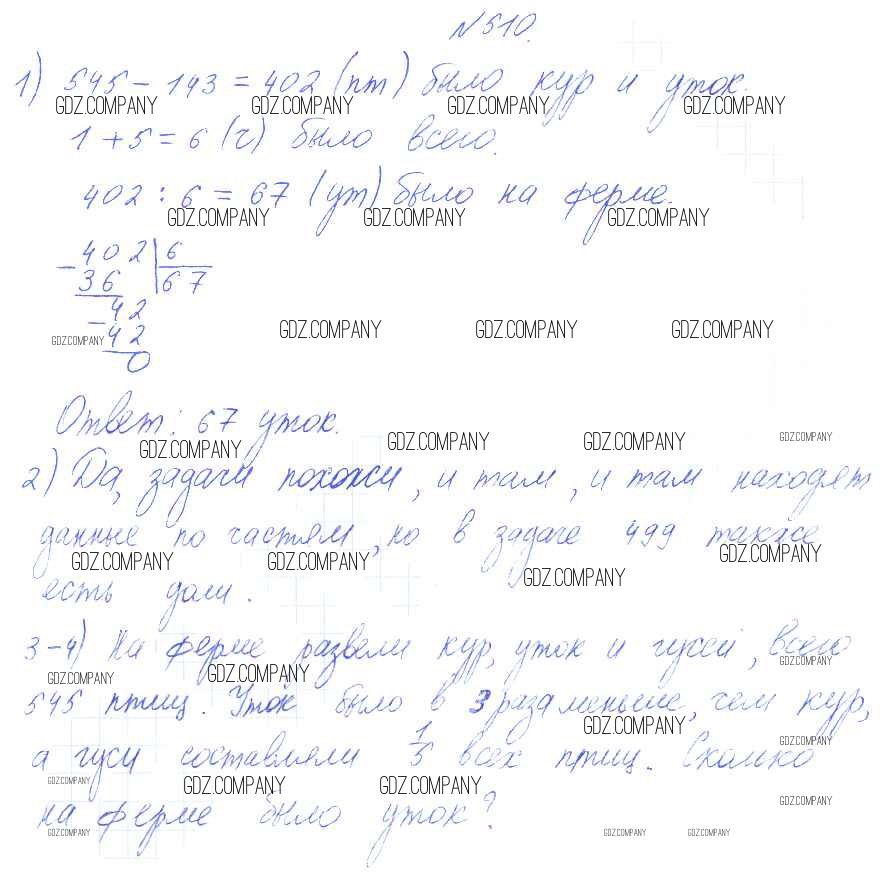 №510.
1) 545 - 143 = 402 (пт) было кур и уток.
GDZ.COMPANY GDZ.COMPANY GDZ.COMPANY GDZ.COMPANY
1 + 5 = 6 (ч) было всего.
402 : 6 = 67 (ут) было на ферме.
GDZ.COMPANY GDZ.COMPANY GDZ.COMPANY
- 402 | 6
36 | 67
- 42
GDZ.COMPANY GDZ.COMPANY GDZ.COMPANY
42
GDZ.COMPANY
0
Ответ: 67 уток.
GDZ.COMPANY GDZ.COMPANY GDZ.COMPANY GDZ.COMPANY
2) Да, задачи похожи, и там, и там находят
данные по частям, но в задаче 499 также
GDZ.COMPANY GDZ.COMPANY GDZ.COMPANY
GDZ.COMPANY
есть доли.
3-4) На ферме развели кур, уток и гусей, всего
GDZ.COMPANY GDZ.COMPANY GDZ.COMPANY
545 птиц. Уток было в 3 раза меньше, чем кур,
GDZ.COMPANY GDZ.COMPANY
а гуси составляли 1/5 всех птиц. Сколько
GDZ.COMPANY GDZ.COMPANY GDZ.COMPANY
GDZ.COMPANY
на ферме было уток?
GDZ.COMPANY GDZ.COMPANY GDZ.COMPANY